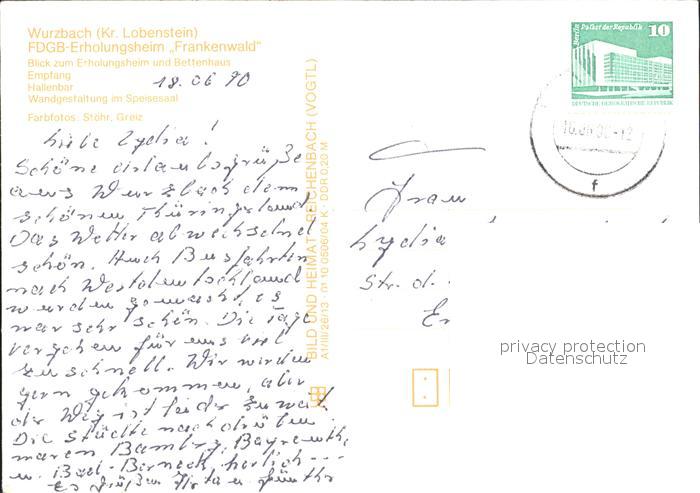 Wurzbach (Kr. Lobenstein)
FDGB-Erholungsheim „Frankenwald"
Blick zum Erholungsheim und Bettenhaus
Empfang
Hallenbar
Wandgestaltung im Speisesaal
Farbfotos: Stöhr, Greiz
18.06 90
Liebe Lydia!
Schöne Urlaubsgrüße
aus Wurzbach dem
schönen Thüringerland
Das Wetter abwechselnd
schön. Auch Busfahrten
nach Westdeutschland
wurden gemacht, es
war sehr schön. Die Tage
vergehen für uns viel
zu schnell. Wir wären
gern gekommen, aber
der Weg ist leider zu weit.
Die Städte nach drüben
waren Bamberg, Bayreuth
u. Bad-Berneck, herlich ---
Es grüßen Günther
BILD UND HEIMAT REICHENBACH (VOGTL)
A1/III/26/13 · 01 10 0506/04 K · DDR 0,20 M
Berlin Palast der Republik
10
DEUTSCHE DEMOKRATISCHE REPUBLIK
f
Frau
Lydia
Str. d.
privacy protection
Datenschutz